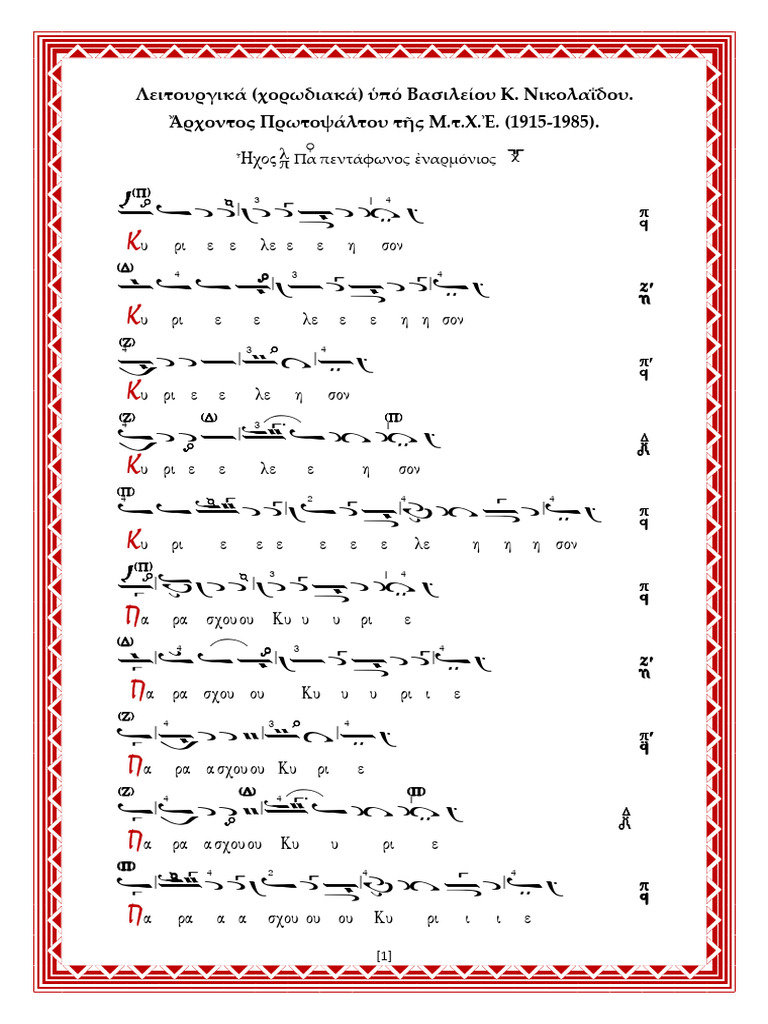 Λειτουργικά (χορωδιακά) ὑπό Βασιλείου Κ. Νικολαΐδου.
Ἄρχοντος Πρωτοψάλτου τῆς Μ.τ.Χ.Ἐ. (1915-1985).
Ἦχος λ π Πα πεντάφωνος ἐναρμόνιος
(Π) 3 4
Κυ ρι ε ε λε ε ε η σον
(Δ) 4 3 4
Κυ ρι ε ε λε ε ε η η σον
(Ζ) 4 3 4
Κυ ρι ε ε λε η σον
(Ζ) 4 (Δ) 3 (Π)
Κυ ρι ε ε λε ε η σον
(Π) 4 2 4 4
Κυ ρι ε ε ε ε ε ε λε η η η σον
(Π) 3 4
Πα ρα σχου ου Κυ υ υ ρι ε
(Δ) 4 3 4
Πα ρα σχου ου Κυ υ υ ρι ι ε
(Ζ) 4 3 4
Πα ρα α σχου ου Κυ ρι ε
(Ζ) 4 (Δ) 4 (Π)
Πα ρα α σχου ου Κυ υ ρι ε
(Π) 4 2 4 4
Πα ρα α α σχου ου ου Κυ ρι ι ι ε
[1]